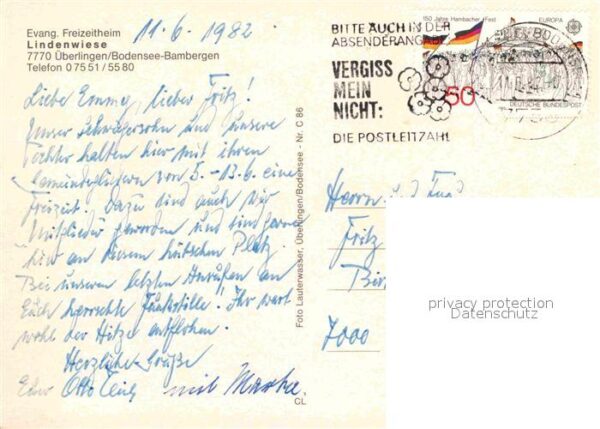 11.6.1982
Evang. Freizeitheim
Lindenwiese
7770 Überlingen/Bodensee-Bambergen
Telefon 0 75 51 / 55 80
Liebe Emma, lieber Fritz!
Unser Schwiegersohn und unsere
Tochter halten hier mit ihren
Gemeindegliedern von 5.-13.6. eine
Freizeit. Dazu sind auch wir
Mitglieder geworden und sind gerne
hier an diesem hübschen Platz.
Bei unseren letzten Anrufen an
Euch herrschte Funkstille! Ihr wart
wohl der Hitze entflohen.
Herzliche Grüße
Euer Otto mit Martha.
Foto Lauterwasser, Überlingen/Bodensee - Nr. C 86
CL
BITTE AUCH IN DER
ABSENDERANGABE
VERGISS
MEIN
NICHT:
DIE POSTLEITZAHL
150 Jahre Hambacher Fest
EUROPA
50
DEUTSCHE BUNDESPOST
Herrn und Frau
Fritz
7000
privacy protection
Datenschutz